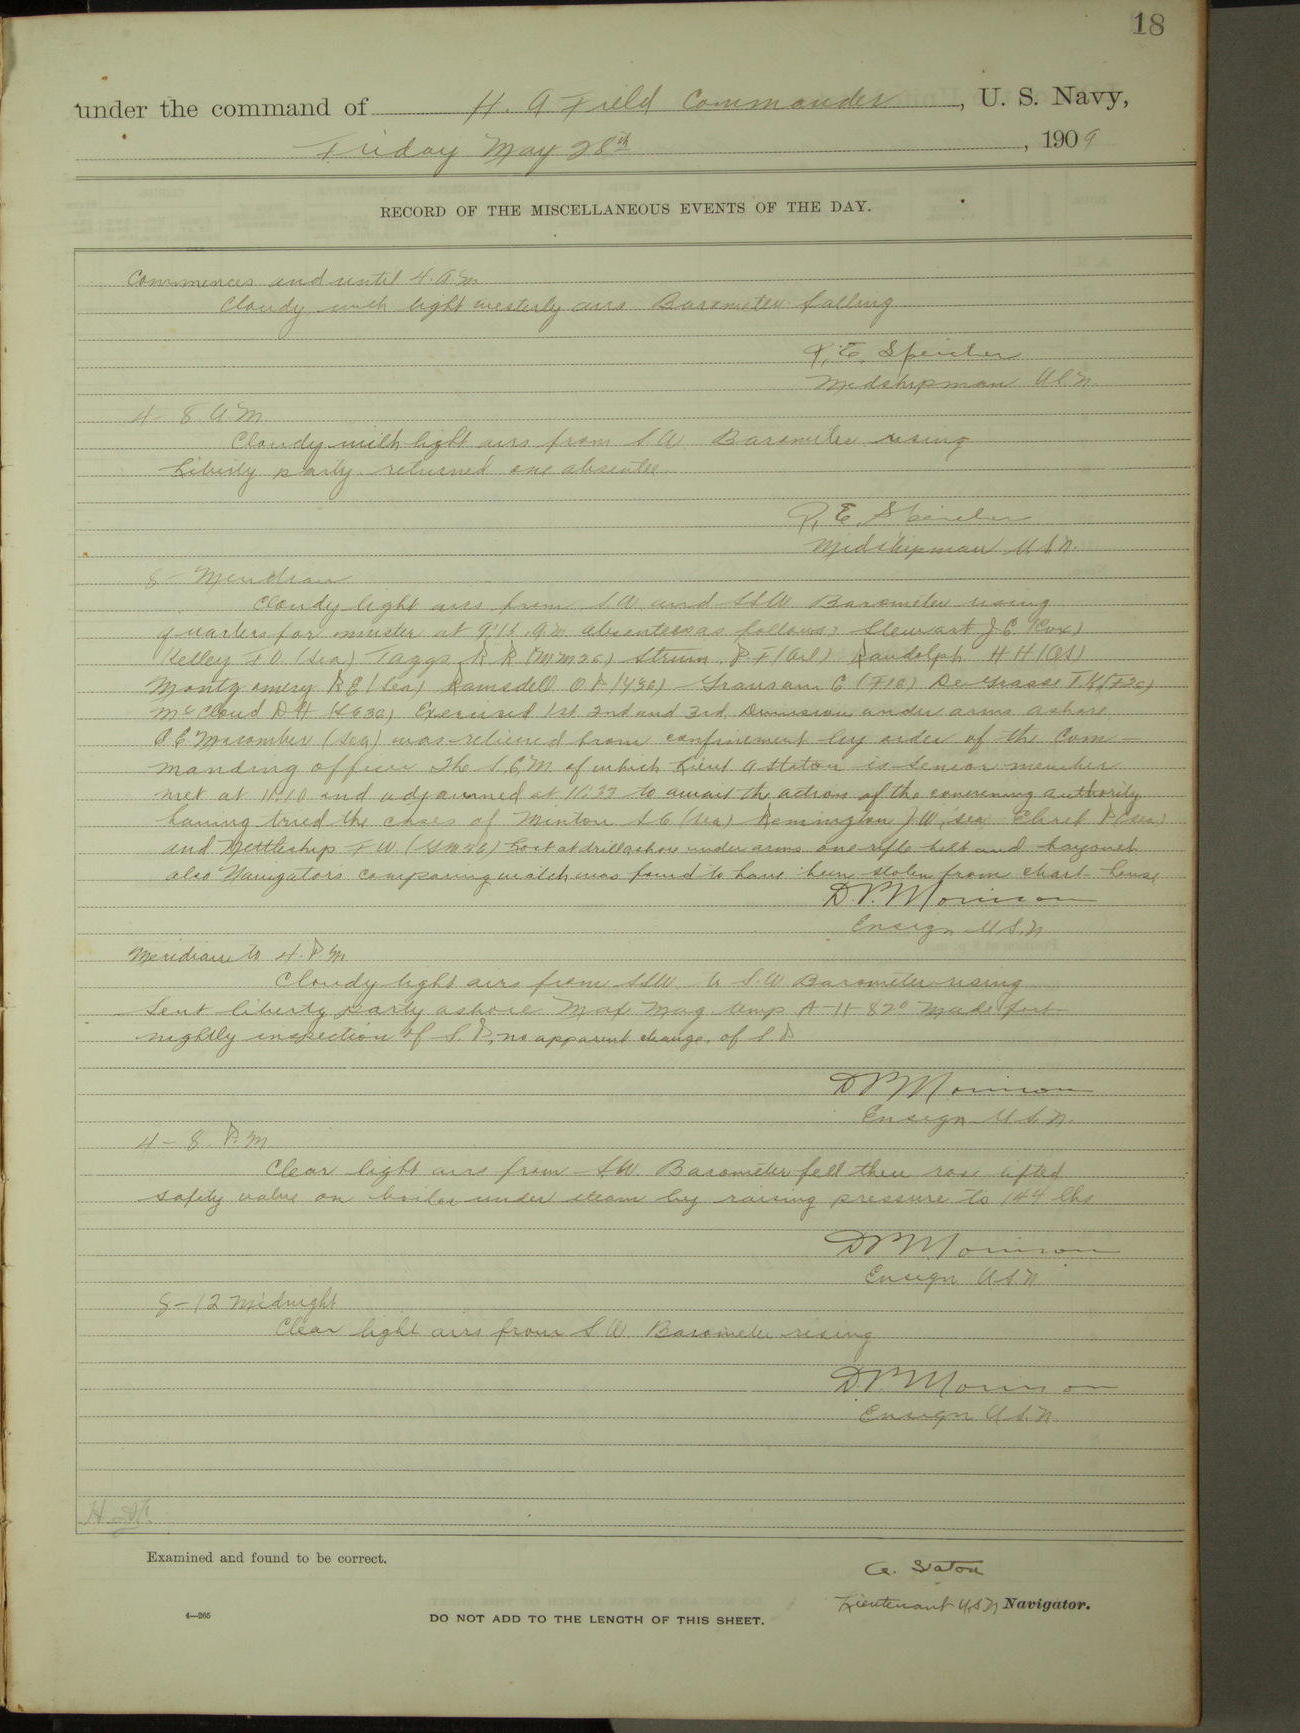 18
under the command of H. A Field Commander, U. S. Navy,
Friday May 28th, 1909
RECORD OF THE MISCELLANEOUS EVENTS OF THE DAY.
Commences and until 4. A.M
Cloudy with light westerly airs Barometer falling
R, E, Speicher
Midshipman U.S.N.
4 - 8 A M
Cloudy with light airs from S W Barometer rising
Liberty party returned one absentee
R, E, Speicher
Midshipman U S N.
8 - Meridian
Cloudy light airs from S W and SSW Barometer rising
quarters for muster at 9:15 A m absentees as follows: Stewart J. C. (Cox)
Kelley F O (Sea) Taggs R R (MM2c) Strum. P F (Oil) Randolph H H (OS)
Montgomery R E (Sea) Ramsdell O P (Y3c) Gransam C (F1c) DeGrasse T K (F2c)
McCloud D H (SC3c) Exercised 1st 2nd and 3rd Divisions under arms ashore
Macomber (Sea) was relieved from confinement by order of the Com-
manding officer The S.C.M. of which Lieut A Staton is senior member
met at 11:10 and adjourned at 11:33 to await the action of the convening authority
having tried the cases of Minton S C (Sea) Remington J W, sea P (sea)
and Nettleship F W (GM2c) Lost at drill ashore under arms one rifle belt and bayonet
also Navigators comparing watch was found to have been stolen from chart house
D. P. Morrison
Ensign U S. N
Meridian to 4. P. M
Cloudy light airs from SSW to S. W Barometer rising
Sent liberty party ashore. Max Mag temp A-11-82° Made fort-
nightly inspection of S. P., no apparent change, of S P
D P Morrison
Ensign U.S.N.
4 - 8. P. M
Clear light airs from S.W. Barometer fell then rose lifted
safety valve on boiler under steam by raising pressure to 144 lbs
D P Morrison
Ensign U S N
8 - 12 Midnight
Clear light airs from S W Barometer rising
D. P. Morrison
Ensign U. S. N.
Examined and found to be correct.
A. Staton
Lieutenant U.S.N Navigator.
4—265
DO NOT ADD TO THE LENGTH OF THIS SHEET.